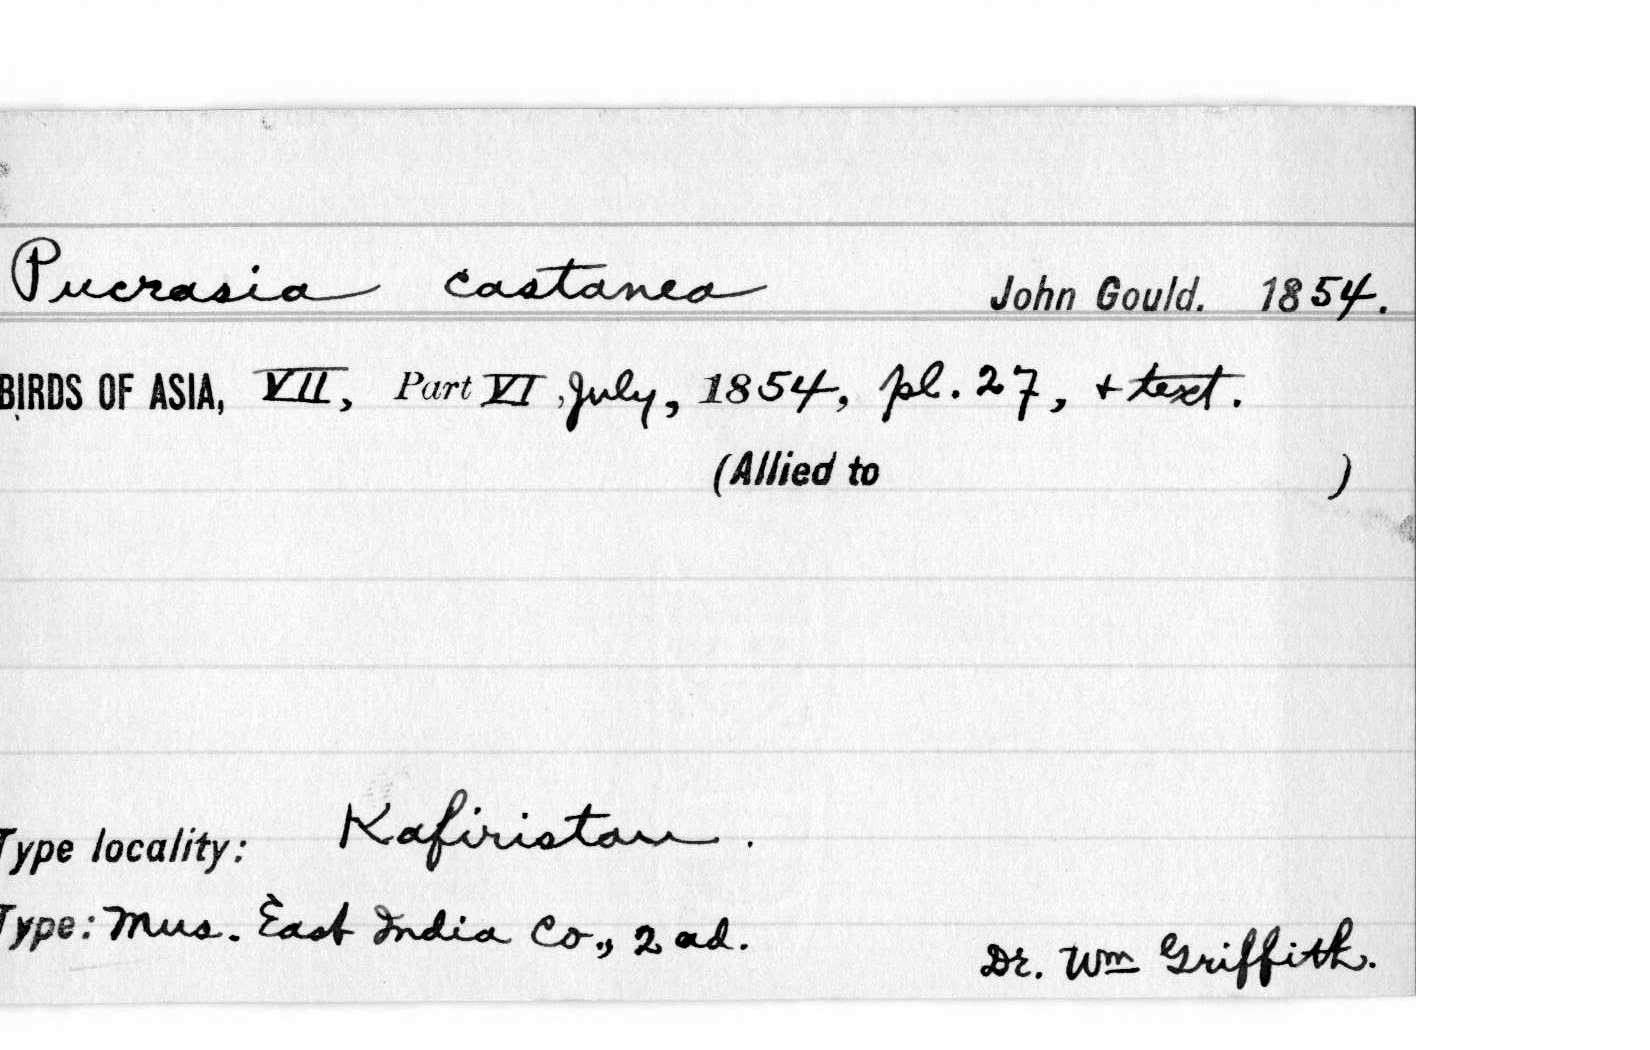 Pucrasia castanea John Gould. 1854.
BIRDS OF ASIA, VII, Part VI, July, 1854, pl. 27, + text.
(Allied to )
Type locality: Kafiristan.
Type: Mus. East India Co., 2 ad.
Dr. Wm Griffith.